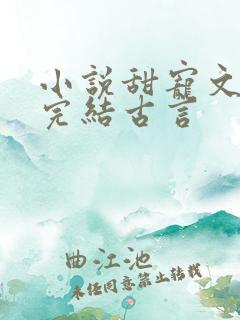 小說甜寵文
完結古言
曲江池
未经同意禁止转载